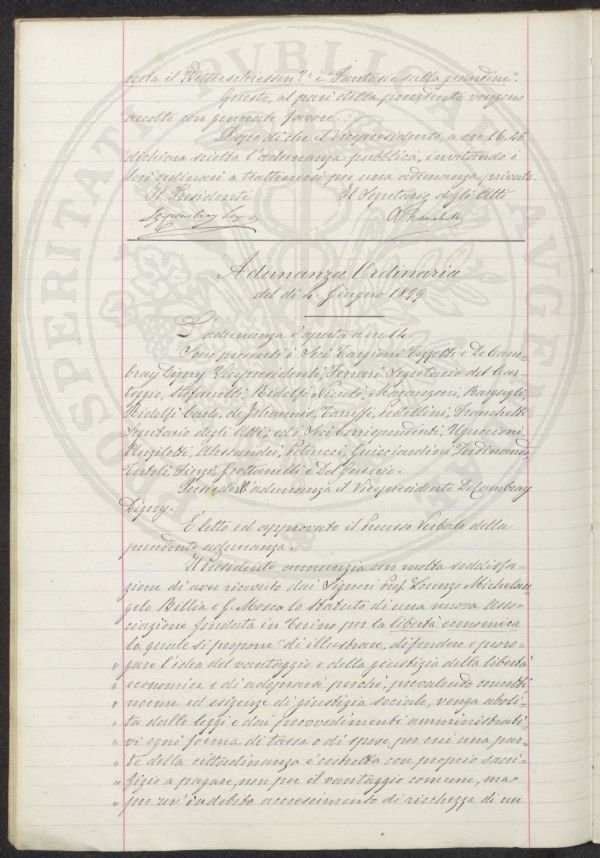 PROSPERITATI PUBLICAE AUGENDAE
sulla il e "Fantasie sulla giardini".
Queste, al pari della precedente vengono
accolte con generale favore.
Dopo di che il Vicepresidente, a ore 16,45
dichiara sciolta l'adunanza pubblica, invitando i
Soci ordinari a trattenersi per una adunanza privata.
Il Presidente Il Segretario degli Atti
A Franchetti
Adunanza Ordinaria
del dì 4 Giugno 1899
L'adunanza è aperta a ore 14.
Sono presenti i Soci Targioni Tozzetti e De Cam-
bray Digny Vicepresidenti, Ferrari Segretario del Car-
teggio, Stefanelli, Ridolfi Niccolò, Marangoni, Bargagli,
Ridolfi Carlo, de Johannis, Taruffi, Sestellini, Franchetti
Segretario degli Atti; ed i Soci corrispondenti, Uguccioni,
Ruzilotti, Alessandri, Petrucci, Guicciardini Ferdinando,
Bertoli, Finzi, Grottanelli e Del Guercio.
Presiede l'adunanza il Vicepresidente De Cambray
Digny.
È letto ed approvato il Processo Verbale della
precedente adunanza.
Il Presidente annunzia con molta soddisfa-
zione di aver ricevuto dai Signori Prof. Lorenzo Michelan-
gelo Billia e G. Mosca lo Statuto di una nuova Asso-
ciazione fondata in Torino per la libertà economica
la quale si propone "di illustrare, difendere e propa-
" gare l'idea del vantaggio e della giustizia della libertà
" economica e di adoprarsi perché, prevalendo concetti,
" norme ed esigenze di giustizia sociale, venga aboli-
" ta dalle leggi e dai provvedimenti amministrati-
" vi ogni forma di tassa o di spese, per cui una par-
" te della cittadinanza è costretta con proprio sacri-
" fizio a pagare, non per il vantaggio comune, ma
" per un' indebito accrescimento di ricchezza di un